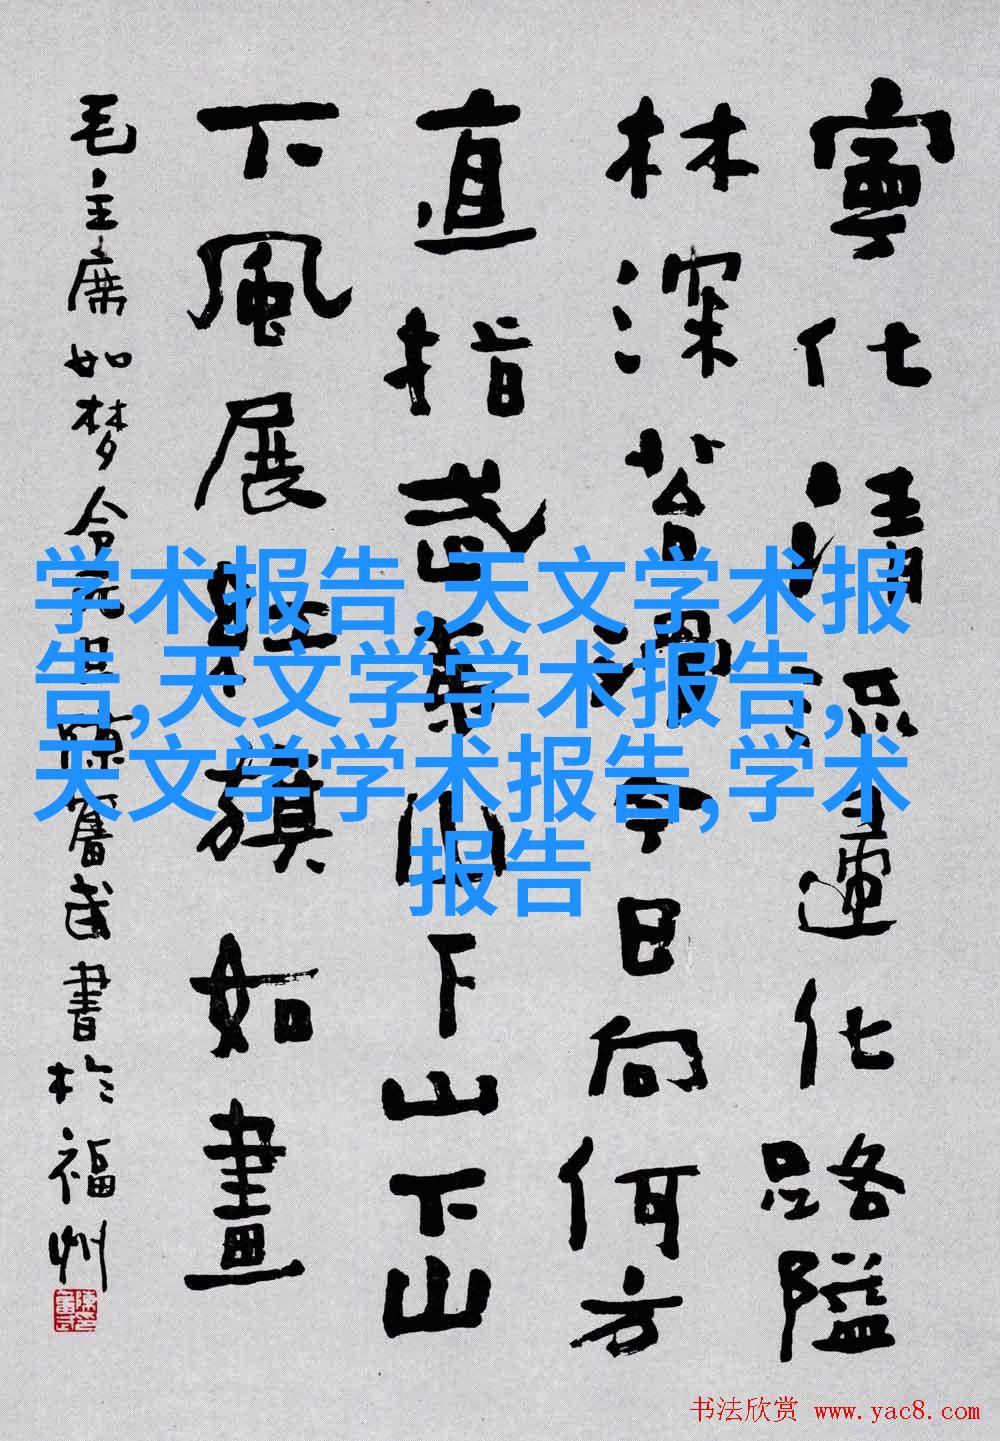 寧化清流歸化路隘
林深苔滑今日向何方
直指武夷山下山下山
下風展紅旗如畫
毛主席如梦令元旦陳奮武書於福州
学术报告,天文学术报
告,天文学学术报告,
天文学学术报告,学术
报告
书法欣赏 www.yac8.com